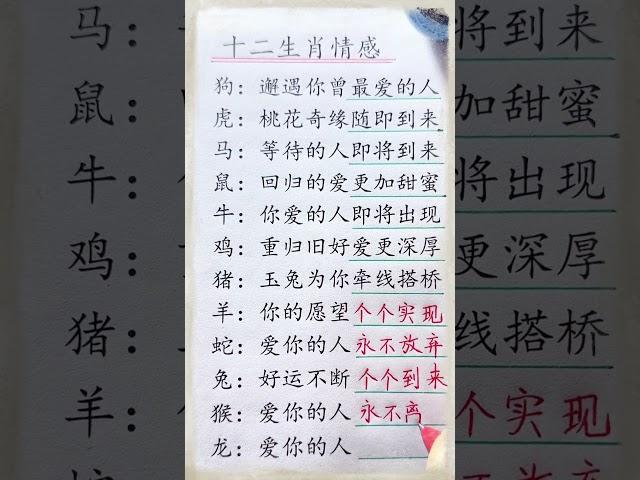 十二生肖情感
狗：邂遇你曾最爱的人
虎：桃花奇缘随即到来
马：等待的人即将到来
鼠：回归的爱更加甜蜜
牛：你爱的人即将出现
鸡：重归旧好爱更深厚
猪：玉兔为你牵线搭桥
羊：你的愿望个个实现
蛇：爱你的人永不放弃
兔：好运不断个个到来
猴：爱你的人永不离
龙：爱你的人